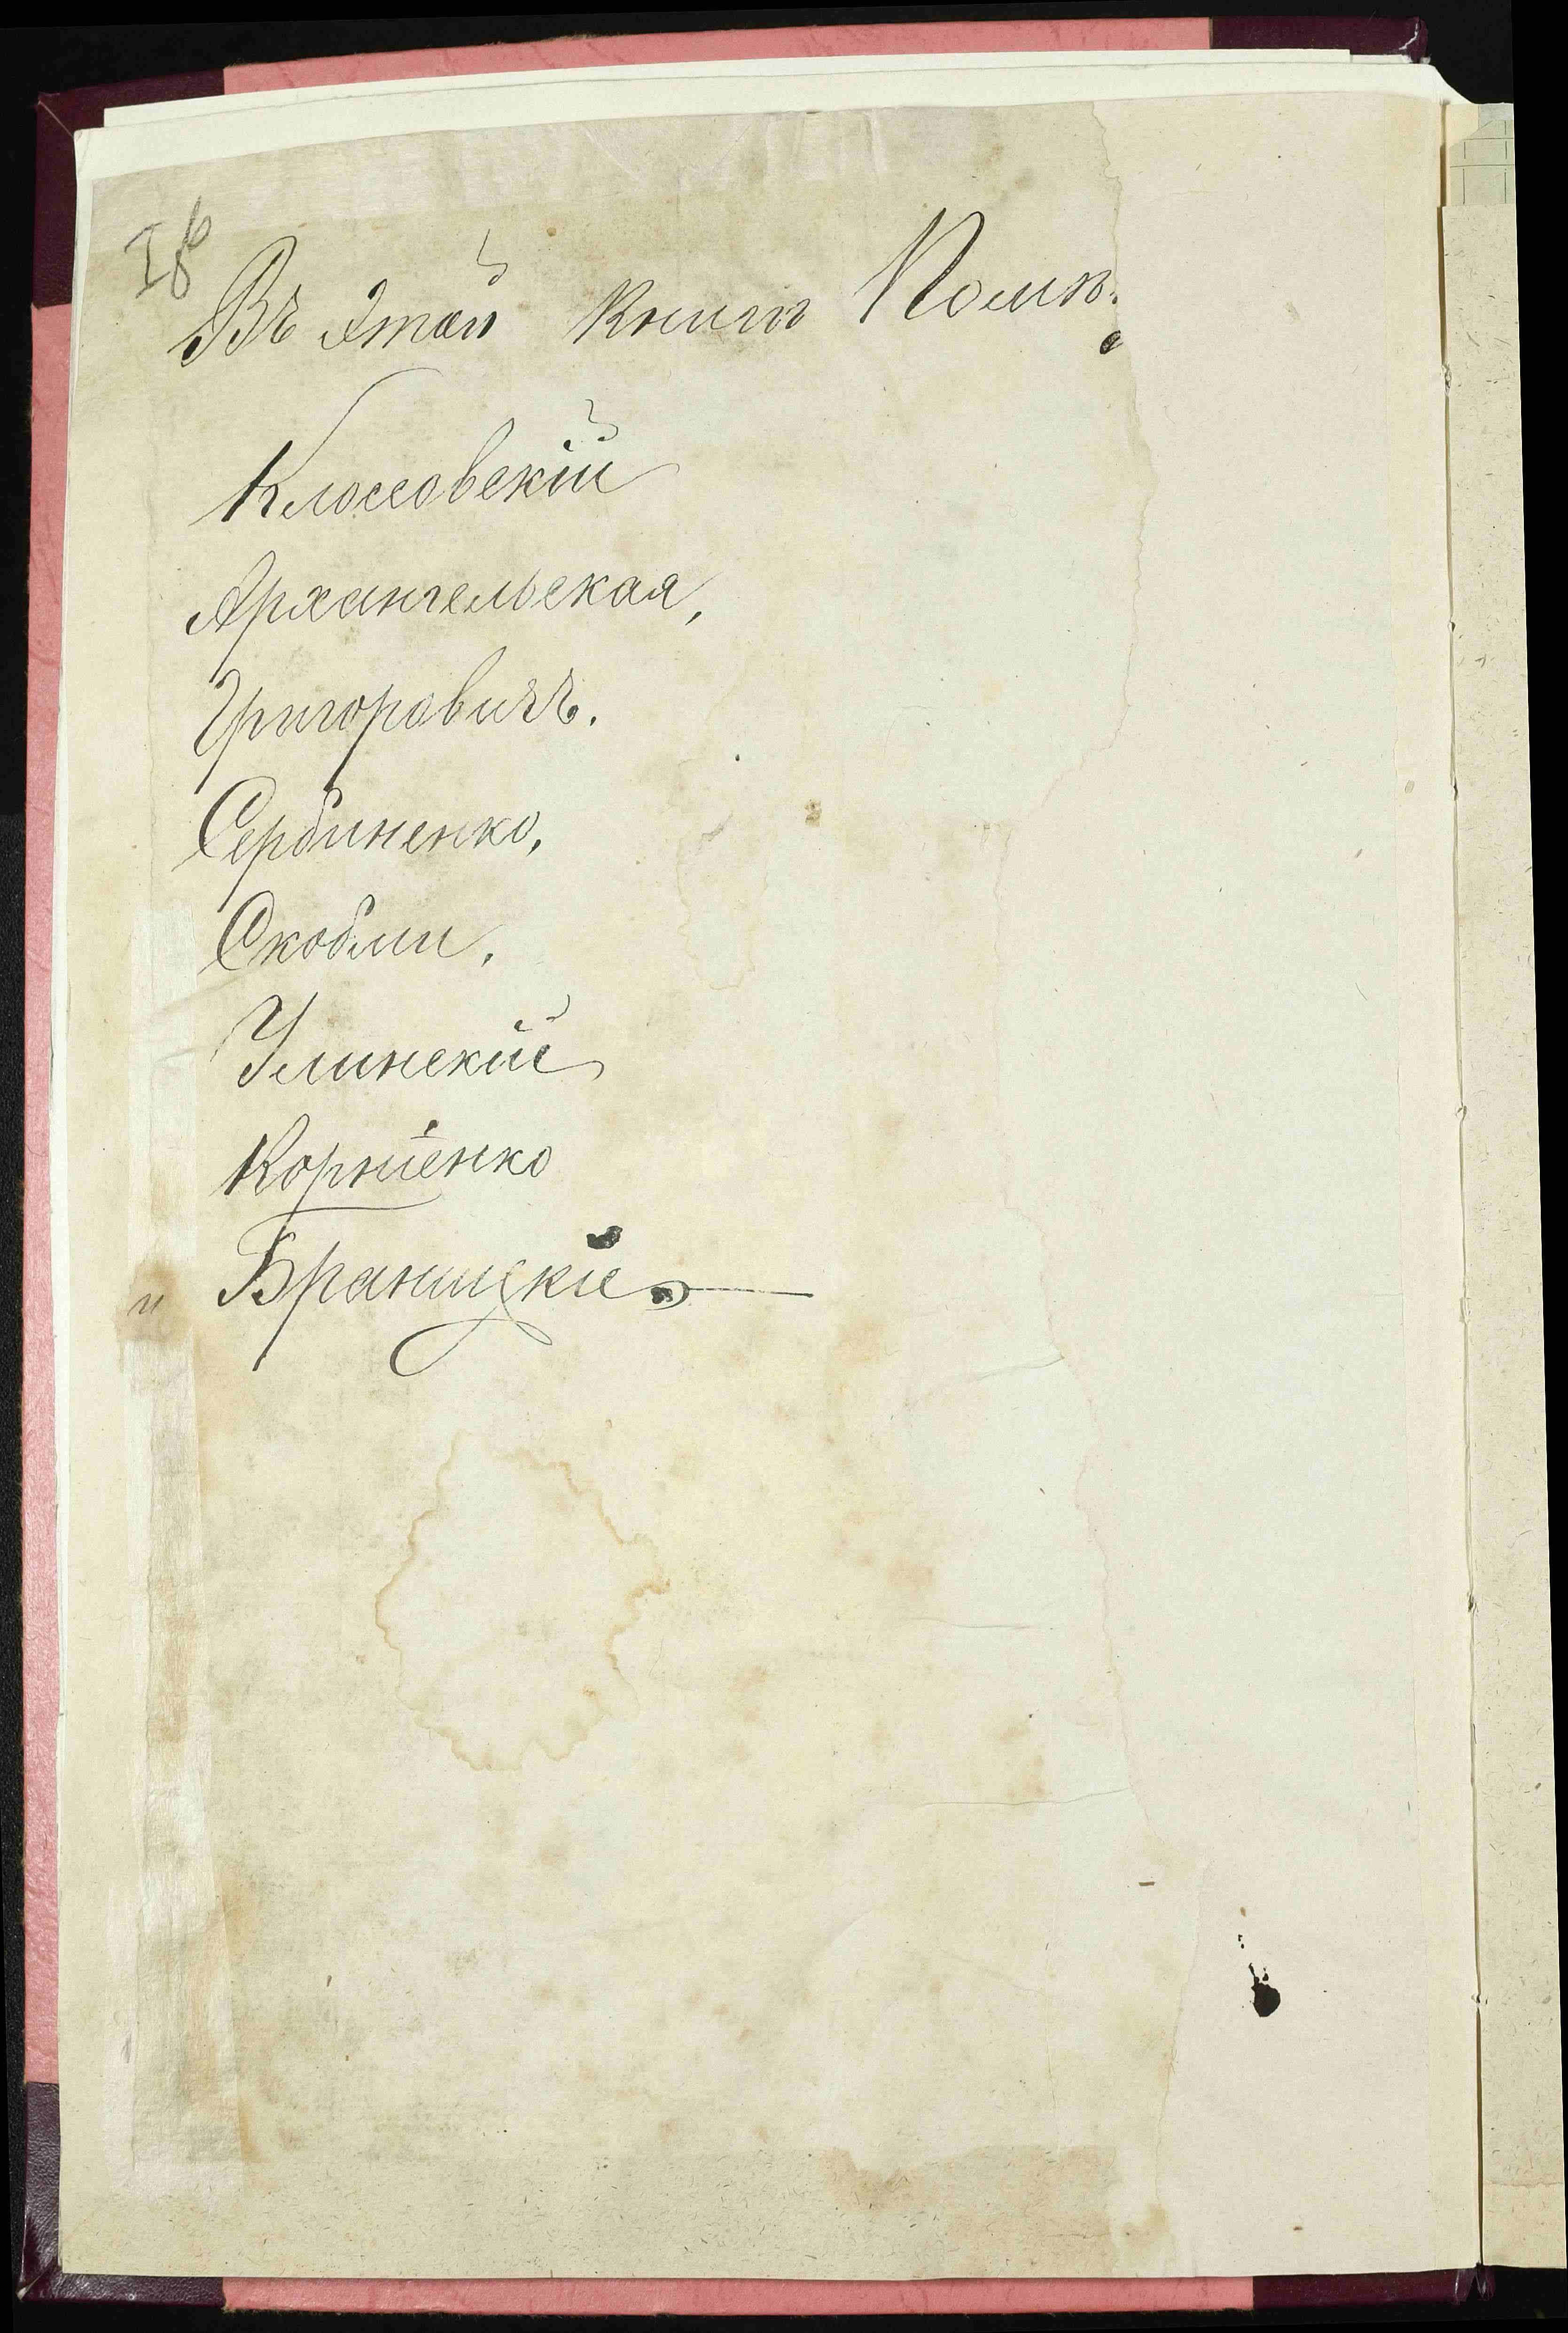 Iв
Въ этой книгѣ Помѣ
Клоссовскій
Архангельская,
Григоровичъ.
Сербиненко,
Скобли,
Улинскій
Корніенко
и Браницкіе